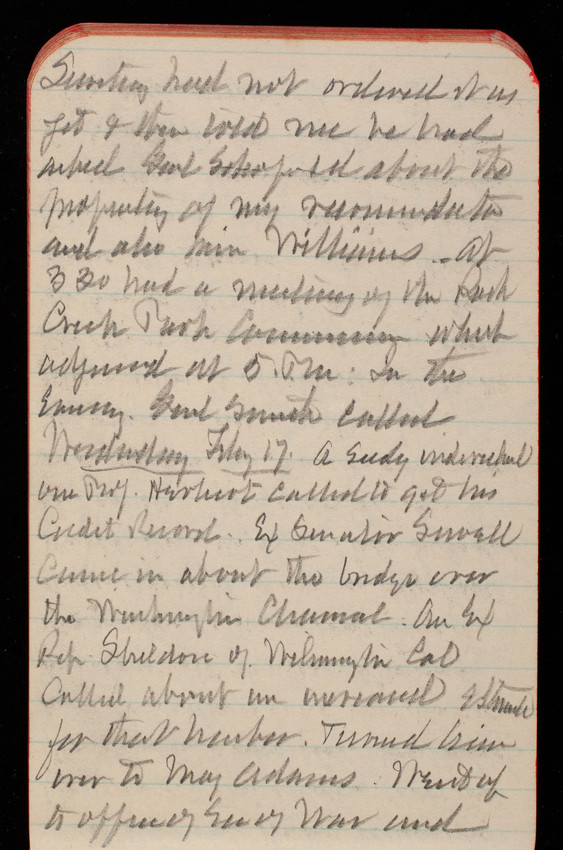 Secretary had not ordered it as
yet & then told me he had
asked Genl Schofield about the
propriety of my recommendation
and also him Williams. At
3 30 had a meeting of the Rock
Creek Park Commission which
adjourned at 5 P.M. In the
Evening Genl Smith called
Wednesday Feby 17. A seedy individual
one Prof. Herbert called to get his
Cadet Record. Ex Senator Sewell
came in about the bridge over
the Washington Channel. An Ex
Rep. Sheldon of Wilmington Cal
Called about an increased estimate
for that harbor. Turned him
over to Maj Adams. Went up
to office of Sec of War and